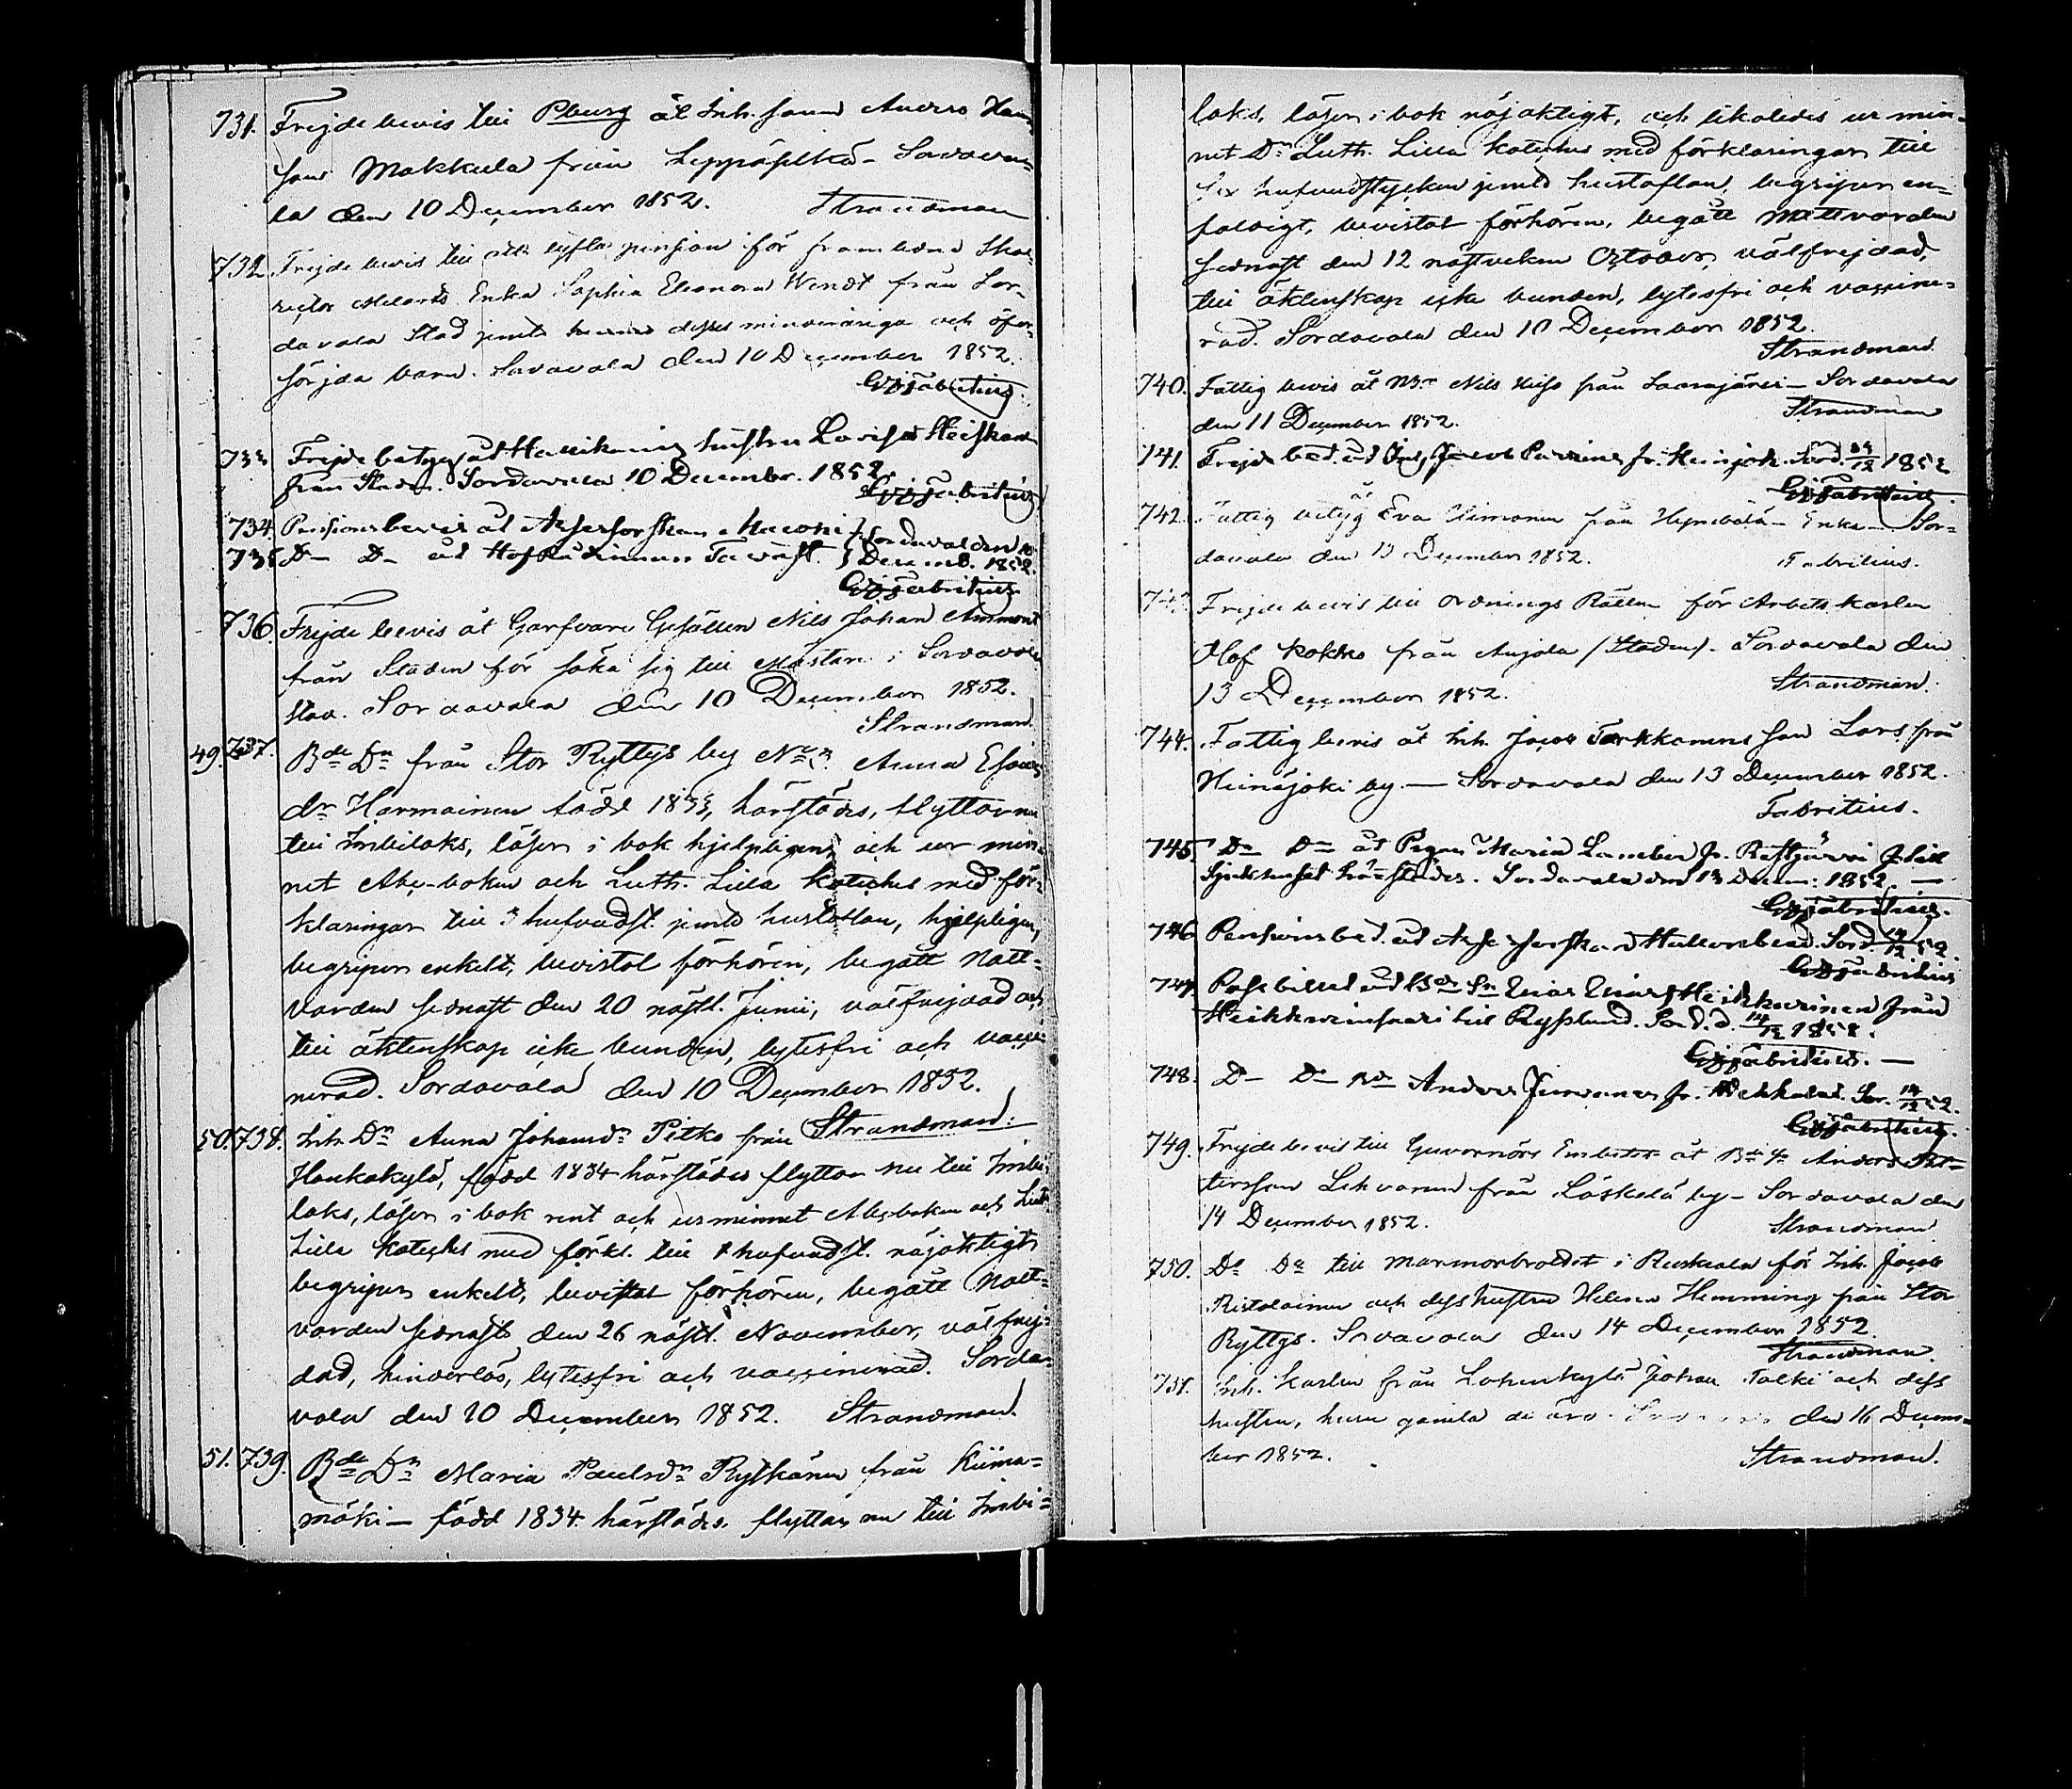 731. Frejdebevis till Pburg åt Inh. sonen Anders Hans
son Makkula från Leppäselkä - Sordava-
la den 10 December 1852. Strandman
732. Frejdebevis till att lyfta pension för framledne
rector Melarts Enka Sophia Eleonora Wendt från Sor-
davala Stad jemte hennes dess minderåriga och oför-
sörjda barn. Sordavala den 10 December 1852.
Fabritius
733. Frejdebetyg åt hustru Lovisa
från Staden. Sordavala 10 December 1852.
Fabritius
734. Pensionsbevis åt Sordavala den 10
735. Do Do åt Decemb. 1852.
Fabritius
736. Frejdebevis åt Garfvare Gesällen Nils Johan
från Staden för söka sig till Mästare i Sordavala
stad. Sordavala den 10 December 1852.
Strandman
49. 737. Bde Dn från Stor Ryttys by No 3. Anna Esaias
dr Harmainen född 1833, härstädes, flyttar nu
till Imbilaks, läser i bok hjelpligen och ur min-
net Abc-boken och Luth. Lilla Kateches med för-
klaringar till 3 hufvudst. jemte hustaflan, hjelpligen,
begriper enkelt, bevistat förhören, begått Natt-
varden sednast den 20 nästl. Junii, välfrejdad och
till äktenskap icke bunden, lytesfri och vacci-
nerad. Sordavala den 10 December 1852.
Strandman.
50. 738. Inh. Dn Anna Johansdr Pitko från
Haukakylä, född 1834 härstädes flyttar nu till Imbi-
laks, läser i bok rent och ur minnet Abcboken och Luth.
Lilla Kateches med förkl. till hufvudst. nöjaktigt
begriper enkelt, bevistat förhören, begått Natt-
varden sednast den 26 nästl. November, välfrej-
dad, hinderlös, lytesfri och vaccinerad. Sorda-
vala den 10 December 1852. Strandman.
51. 739. Bde Dn Maria Paulsdr Ryskänen från Kiima-
mäki - född 1834 härstädes, flyttar nu till Imbi-
laks, läser i bok nöjaktigt, och likaledes ur min-
net Dr Luth. Lilla Kateches med förklaringar till
sex hufvudstycken jemte hustaflan, begriper en-
faldigt, bevistat förhören, begått Nattvarden
sednast den 12 nästvekne October, välfrejdad,
till äktenskap icke bunden, lytesfri och vaccine-
rad. Sordavala den 10 December 1852.
Strandman.
740. Fattig bevis åt Bn Nils från - Sordavala
den 11 December 1852. Strandman
741. Frejd bet. åt Inh. Jacob fr. Sord. 1852
Fabritius
742. Fattig betyg åt Eva från - Enka - Sor-
davala den 13 December 1852. Fabritius.
743. Frejdebevis till Ordnings Rätten för Arbets karlen
Olof Kokko från Anjala (Staden). Sordavala den
13 December 1852. Strandman.
744. Fattig bevis åt Inh. Jacob Tarkkanens son Lars från
Heinäjoki by. — Sordavala den 13 December 1852.
Fabritius.
745. Do Do åt Pigan Maria fr. till
Sjukhuset härstädes. Sordavala den 13 Decem: 1852. —
Fabritius.
746. Pensionsbet. åt Sord. 14/12 52.
Fabritius
747. från
till Ryssland. Sord. d. 14/12 1852.
Fabritius. —
748. Do Do Bd Anders fr. Sor. 14/12 52.
Fabritius.
749. Frejdebevis till Guvernörs Embetet åt Bde Sn Anders Pet-
tersson Lihvonen från Läskelä by - Sordavala den
14 December 1852. Strandman
750. Do Do till marmorbrottet i Ruskeala för Inh. Jacob
Ristolainen och dess hustru Helena Hemming från Stor
Ryttys. Sordavala den 14 December 1852.
Strandman.
751. Inh. karlen från Johan Talki och dess
hustru, huru gamla de äro. den 16 Decem-
ber 1852. Strandman.